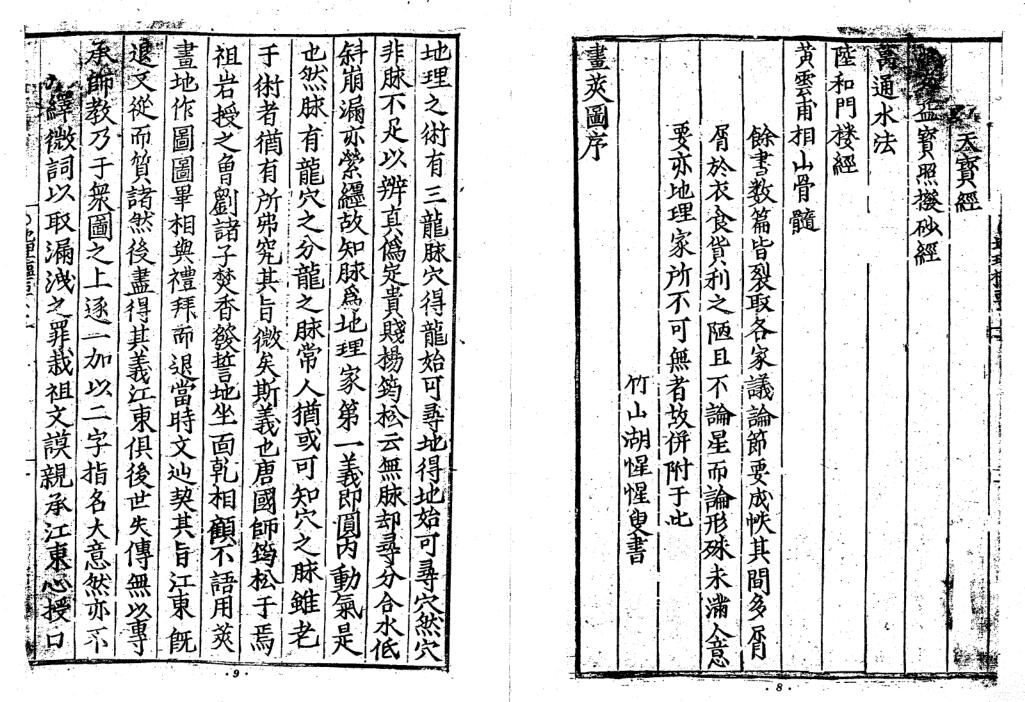 天寶經
孟寶照撥砂經
萬通水法
陸和門搜經
黃雲甫相山骨髓
餘書数篇皆裂取各家議論節要成帙其間多屑
屑於衣食貨利之陋且不論星而論形殊未滿人意
要亦地理家所不可無者故併附于此
竹山湖惺惺叟書
畫筴圖序
·8·
地理之術有三龍脉穴得龍始可尋地得地始可尋穴然穴
非脉不足以辨真僞定貴賤楊筠松云無脉却尋分合水低
斜崩漏亦縈纒故知脉爲地理家第一義即圓内動氣是
也然脉有龍穴之分龍之脉常人猶或可知穴之脉雖老
于術者猶有所弗究其旨微矣斯義也唐國師筠松于焉
祖岩授之魯劉諸子焚香發誓地坐面乾相顧不語用筴
畫地作圖圖畢相與禮拜而退當時文辿契其旨江東既
退又從而質諸然後盡得其義江東俱後世失傳無以專
承師教乃于衆圖之上逐一加以二字指名大意然亦不
繹微詞以取漏洩之罪哉祖文謨親承江東心授口
·9·